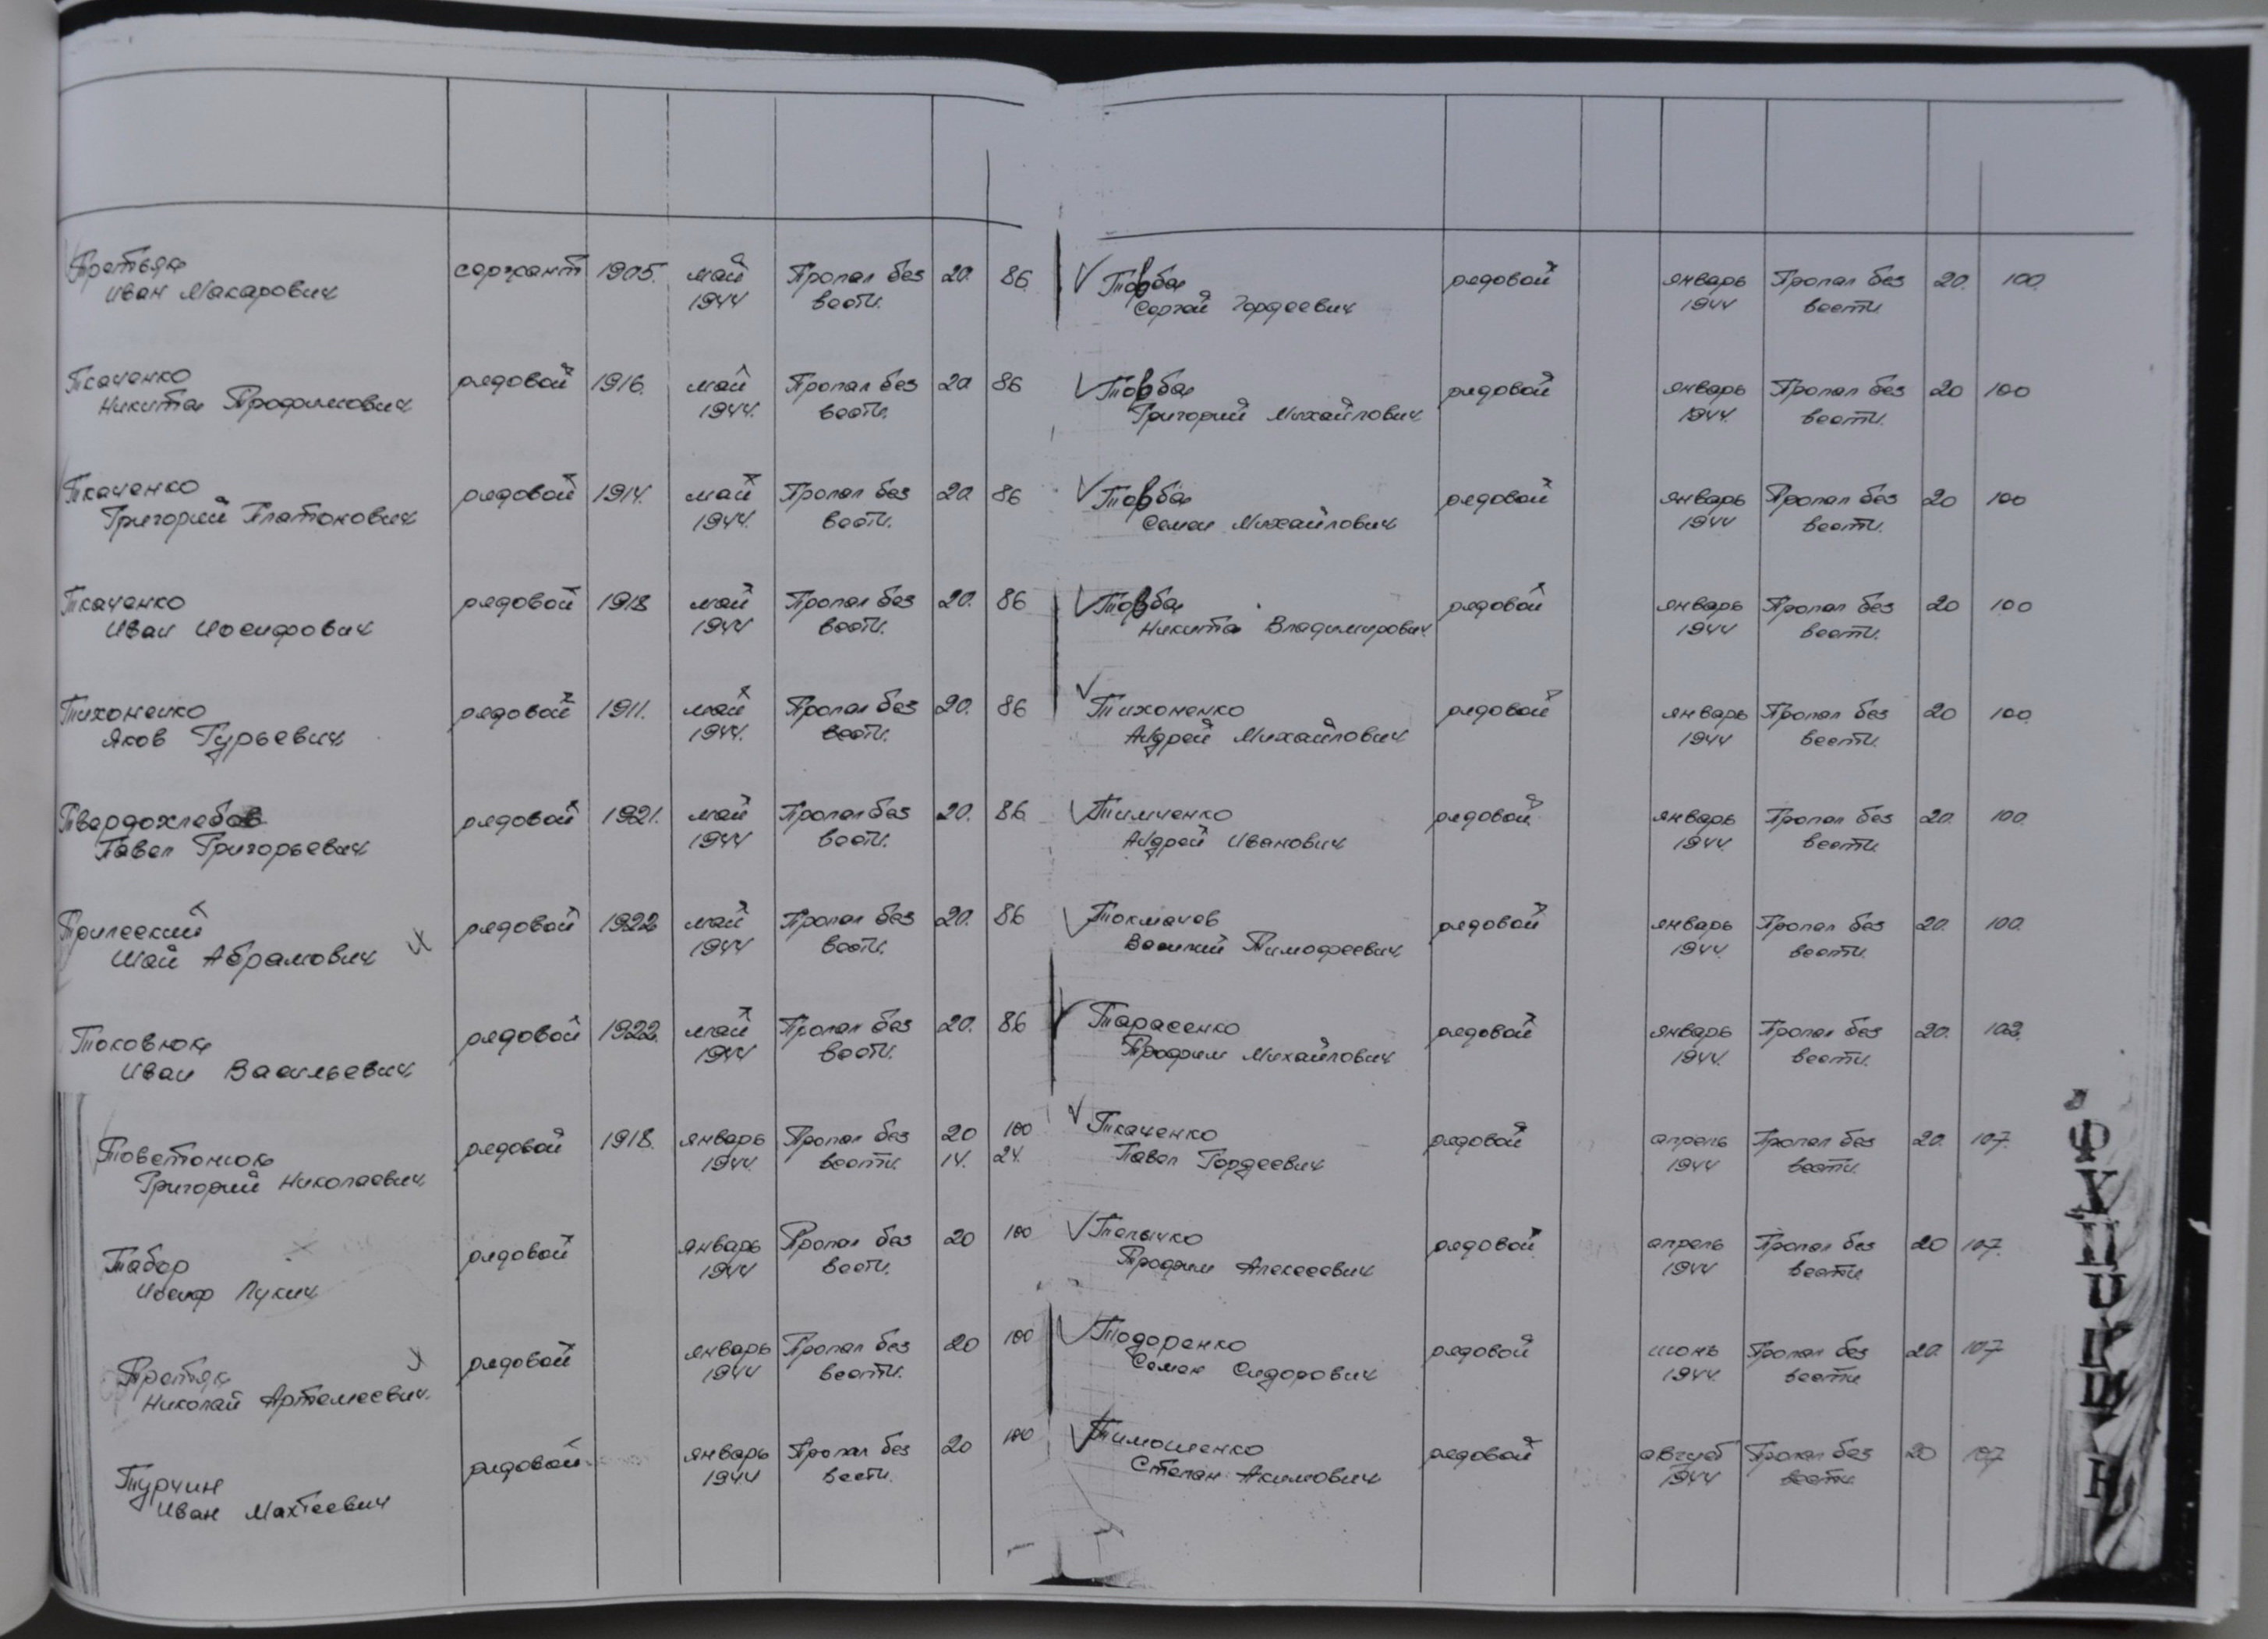 Третьяк сержант 1905. май Пропал без 20. 86.
Иван Макарович 1944 вести.
Ткаченко рядовой 1916. май Пропал без 20 86
Никита Трофимович 1944. вести.
Ткаченко рядовой 1914. май Пропал без 20 86
Григорий Платонович 1944. вести.
Ткаченко рядовой 1918 май Пропал без 20. 86
Иван Иосифович 1944 вести.
Тихоненко рядовой 1911. май Пропал без 20. 86
Яков Гурьевич 1944. вести.
Твердохлебов рядовой 1921. май Пропал без 20. 86
Павел Григорьевич 1944 вести.
Трилеский рядовой 1922 май Пропал без 20. 86
Шай Абрамович 1944 вести.
Токовюк рядовой 1922. май Пропал без 20. 86
Иван Васильевич 1944 вести.
Товстонюк рядовой 1918. январь Пропал без 20 100
Григорий Николаевич 1944 вести 14. 24.
Табор рядовой январь Пропал без 20 100
Иосиф Лукич 1944 вести.
Третьяк рядовой январь Пропал без 20 100
Николай Артемеевич. 1944 вести.
Турчин рядовой январь Пропал без 20 100
Иван Махтеевич 1944 вести.
Товба рядовой январь Пропал без 20. 100.
Сергей Гордеевич 1944 вести
Товба рядовой январь Пропал без 20 100
Григорий Михайлович 1944. вести.
Товба рядовой январь Пропал без 20 100
Семен Михайлович 1944 вести.
Товба рядовой январь Пропал без 20 100
Никита Владимирович 1944 вести.
Тихоненко рядовой январь Пропал без 20 100
Андрей Михайлович 1944 вести.
Тимченко рядовой январь Пропал без 20. 100.
Андрей Иванович 1944. вести
Токмачев рядовой январь Пропал без 20. 100.
Василий Тимофеевич 1944. вести.
Тарасенко рядовой январь Пропал без 20. 102.
Трофим Михайлович 1944. вести.
Ткаченко рядовой апрель Пропал без 20. 107.
Павел Гордеевич 1944 вести.
Телычко рядовой апрель Пропал без 20 107.
Трофим Алексеевич 1944 вести
Тодоренко рядовой июнь Пропал без 20. 107
Семен Сидорович 1944. вести
Тимошенко рядовой август Пропал без 20 107
Степан Акимович 1944 вести
Ф
Х
Ц